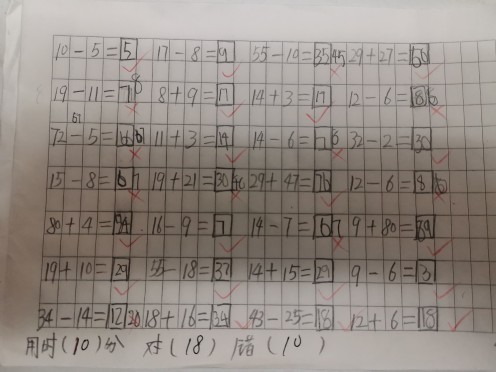 10-5=5 17-8=9 55-10=35 45 29+27=56
19-11=7 8 8+9=17 14+3=17 12-6=8 6
72-5=66 67 11+3=14 14-6=7 8 32-2=30
15-8=6 7 19+21=30 40 29+47=76 12-6=8 6
80+4=84 16-9=7 14-7=6 7 9+80=89
19+10=29 55-18=37 14+15=29 9-6=3
34-14=12 20 18+16=34 43-25=18 12+6=18
用时(10)分 对(18) 错(10)